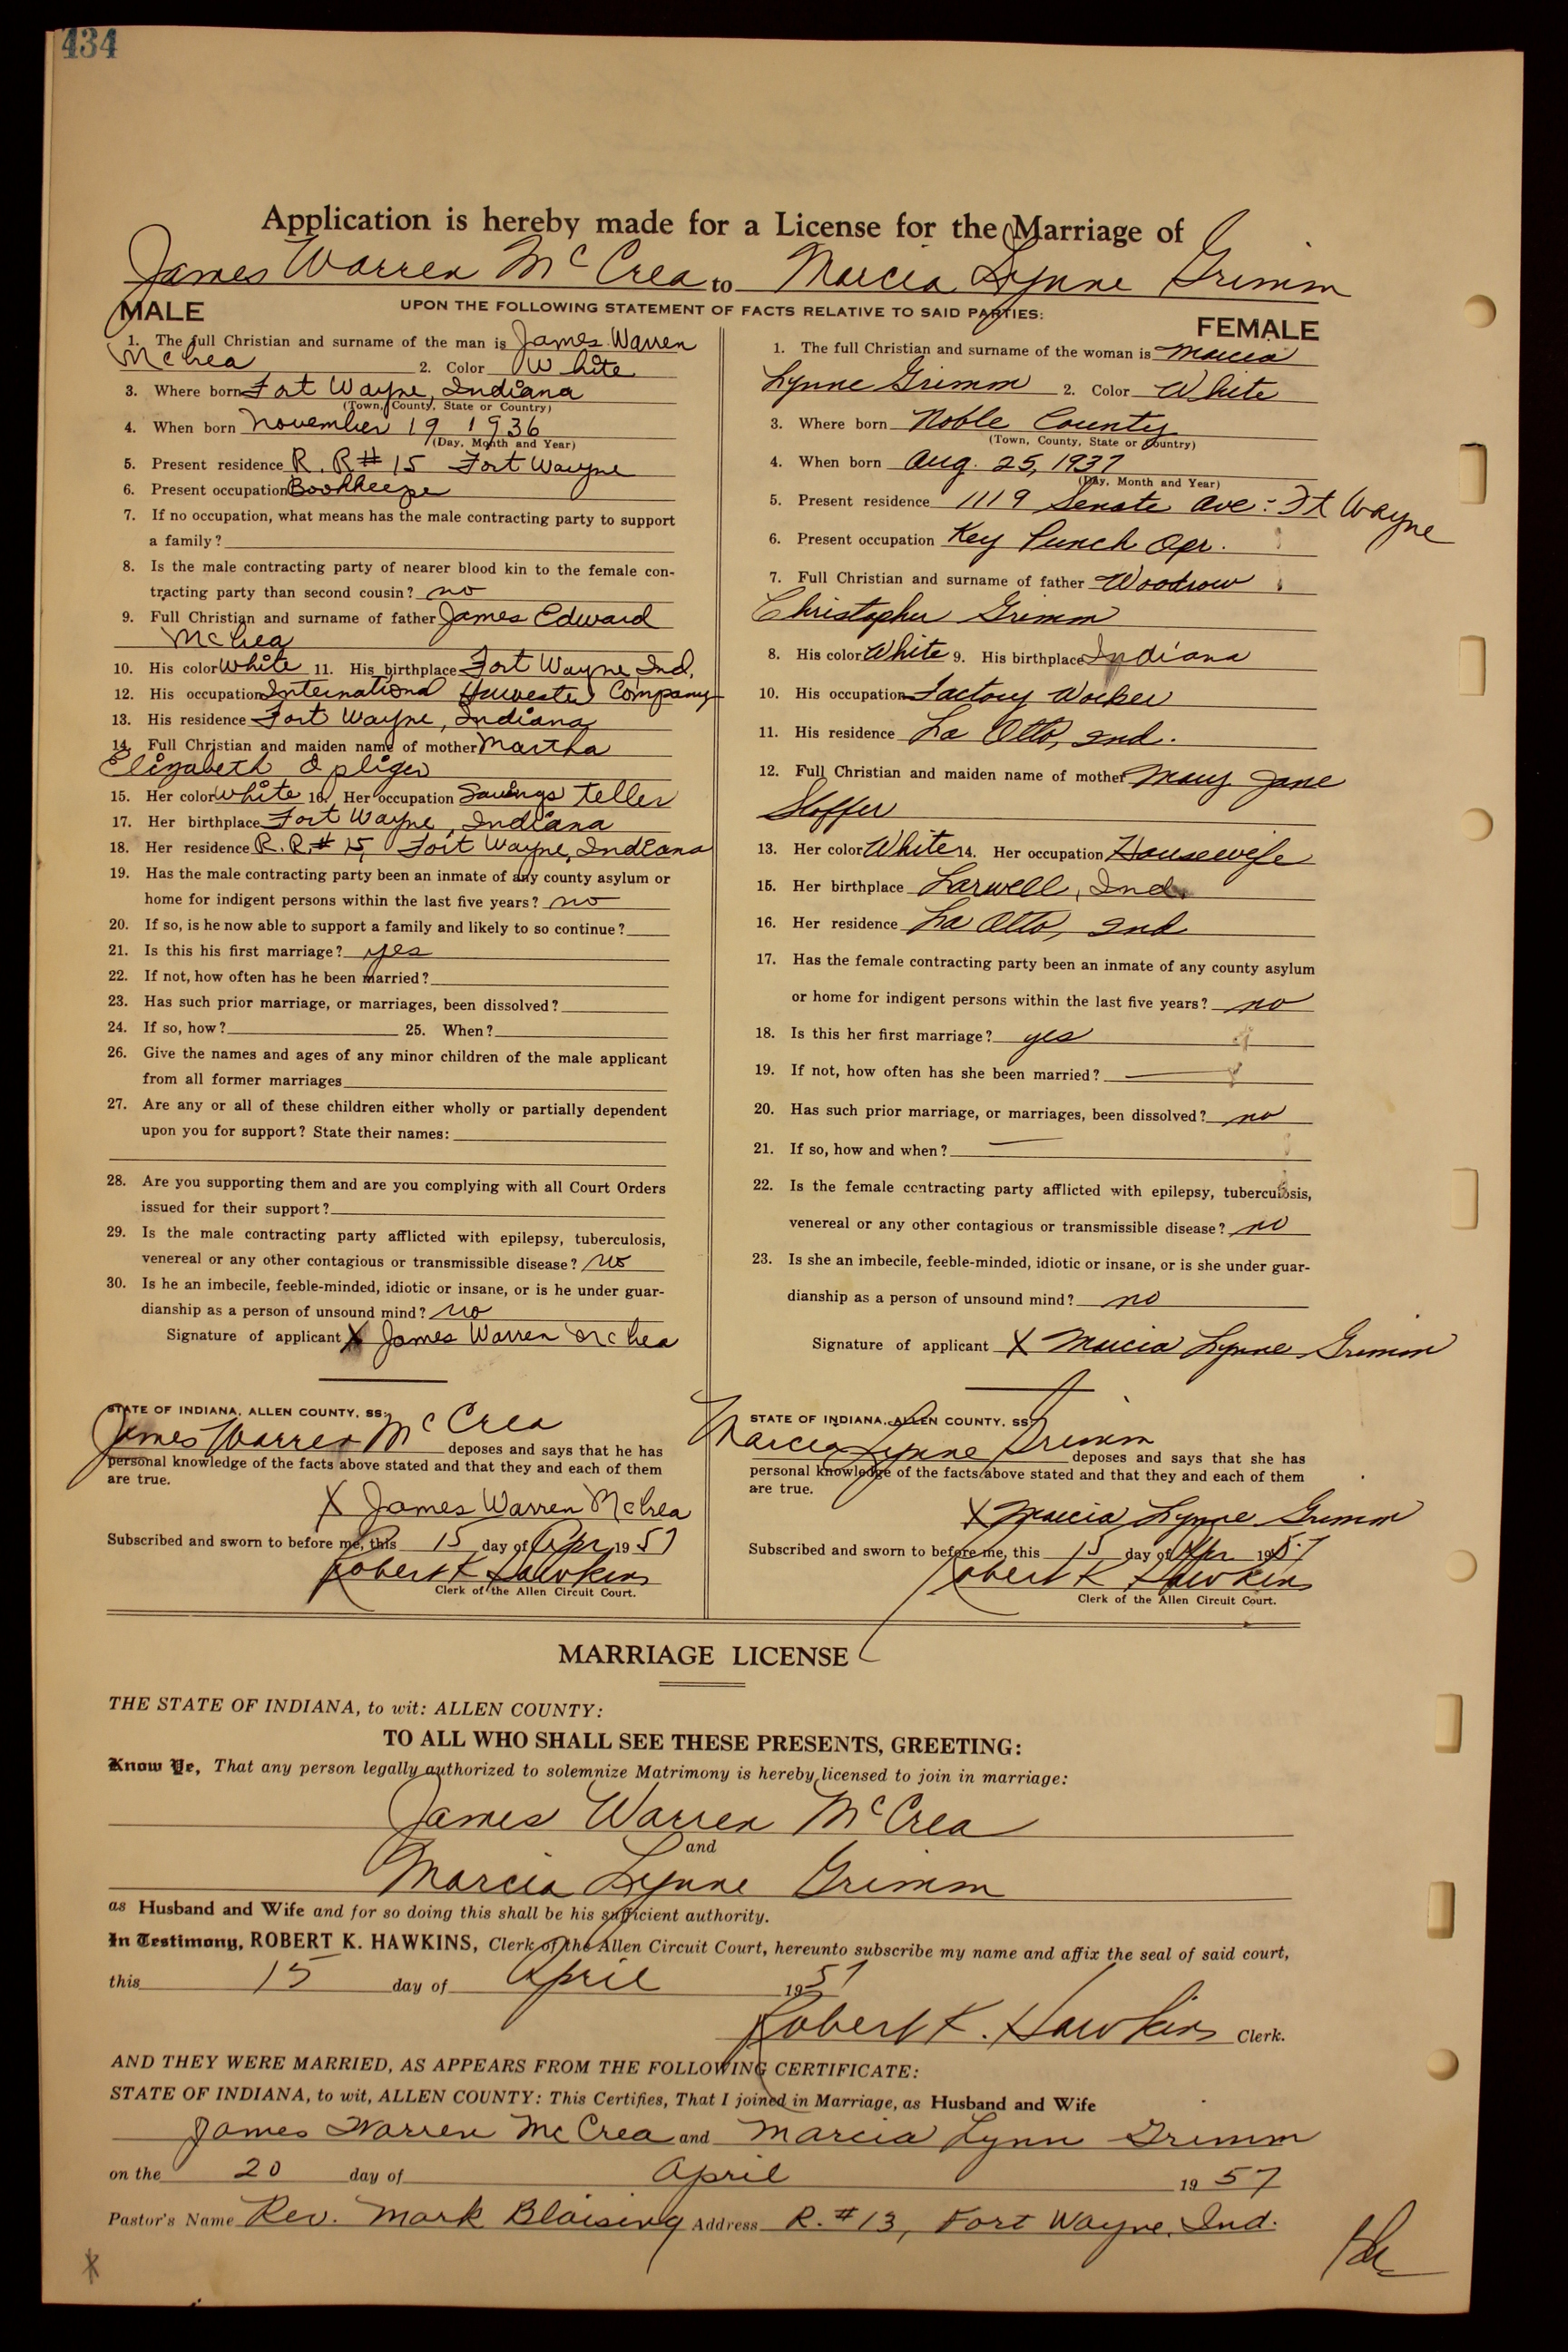 434
Application is hereby made for a License for the Marriage of
James Warren McCrea to Marcia Lynne Grimm
UPON THE FOLLOWING STATEMENT OF FACTS RELATIVE TO SAID PARTIES:
MALE
1. The full Christian and surname of the man is James Warren
McCrea 2. Color White
3. Where born Fort Wayne, Indiana
(Town, County, State or Country)
4. When born November 19 1936
(Day, Month and Year)
5. Present residence R. R # 15 Fort Wayne
6. Present occupation Bookkeeper
7. If no occupation, what means has the male contracting party to support
a family?
8. Is the male contracting party of nearer blood kin to the female con-
tracting party than second cousin? no
9. Full Christian and surname of father James Edward
McCrea
10. His color White 11. His birthplace Fort Wayne Ind.
12. His occupation International Harvester Company
13. His residence Fort Wayne, Indiana
14. Full Christian and maiden name of mother Martha
Elizabeth Opliger
15. Her color White 16. Her occupation Savings teller
17. Her birthplace Fort Wayne, Indiana
18. Her residence R. R. # 15, Fort Wayne, Indiana
19. Has the male contracting party been an inmate of any county asylum or
home for indigent persons within the last five years? no
20. If so, is he now able to support a family and likely to so continue?
21. Is this his first marriage? yes
22. If not, how often has he been married?
23. Has such prior marriage, or marriages, been dissolved?
24. If so, how? 25. When?
26. Give the names and ages of any minor children of the male applicant
from all former marriages
27. Are any or all of these children either wholly or partially dependent
upon you for support? State their names:
28. Are you supporting them and are you complying with all Court Orders
issued for their support?
29. Is the male contracting party afflicted with epilepsy, tuberculosis,
venereal or any other contagious or transmissible disease? no
30. Is he an imbecile, feeble-minded, idiotic or insane, or is he under guar-
dianship as a person of unsound mind? no
Signature of applicant X James Warren McCrea
STATE OF INDIANA, ALLEN COUNTY, SS:
James Warren McCrea deposes and says that he has
personal knowledge of the facts above stated and that they and each of them
are true.
X James Warren McCrea
Subscribed and sworn to before me, this 15 day of Apr 1957
Robert K Hawkins
Clerk of the Allen Circuit Court.
FEMALE
1. The full Christian and surname of the woman is Marcia
Lynne Grimm 2. Color White
3. Where born Noble County
(Town, County, State or Country)
4. When born Aug. 25, 1937
(Day, Month and Year)
5. Present residence 1119 Senate Ave: Ft Wayne
6. Present occupation Key Punch Opr.
7. Full Christian and surname of father Woodrow
Christopher Grimm
8. His color White 9. His birthplace Indiana
10. His occupation Factory Worker
11. His residence La Otto, Ind.
12. Full Christian and maiden name of mother Mary Jane
Stoffer
13. Her color White 14. Her occupation Housewife
15. Her birthplace Larwell, Ind.
16. Her residence La Otto, Ind
17. Has the female contracting party been an inmate of any county asylum
or home for indigent persons within the last five years? no
18. Is this her first marriage? yes
19. If not, how often has she been married?
20. Has such prior marriage, or marriages, been dissolved? no
21. If so, how and when?
22. Is the female contracting party afflicted with epilepsy, tuberculosis,
venereal or any other contagious or transmissible disease? no
23. Is she an imbecile, feeble-minded, idiotic or insane, or is she under guar-
dianship as a person of unsound mind? no
Signature of applicant X Marcia Lynne Grimm
STATE OF INDIANA, ALLEN COUNTY, SS:
Marcia Lynne Grimm deposes and says that she has
personal knowledge of the facts above stated and that they and each of them
are true.
X Marcia Lynne Grimm
Subscribed and sworn to before me, this 15 day of Apr 1957
Robert K Hawkins
Clerk of the Allen Circuit Court.
MARRIAGE LICENSE
THE STATE OF INDIANA, to wit: ALLEN COUNTY:
TO ALL WHO SHALL SEE THESE PRESENTS, GREETING:
Know Ye, That any person legally authorized to solemnize Matrimony is hereby licensed to join in marriage:
James Warren McCrea
and
Marcia Lynne Grimm
as Husband and Wife and for so doing this shall be his sufficient authority.
In Testimony, ROBERT K. HAWKINS, Clerk of the Allen Circuit Court, hereunto subscribe my name and affix the seal of said court,
this 15 day of April 1957
Robert K. Hawkins Clerk.
AND THEY WERE MARRIED, AS APPEARS FROM THE FOLLOWING CERTIFICATE:
STATE OF INDIANA, to wit, ALLEN COUNTY: This Certifies, That I joined in Marriage, as Husband and Wife
James Warren McCrea and Marcia Lynn Grimm
on the 20 day of April 1957
Pastor's Name Rev. Mark Blaising Address R. #13, Fort Wayne, Ind.